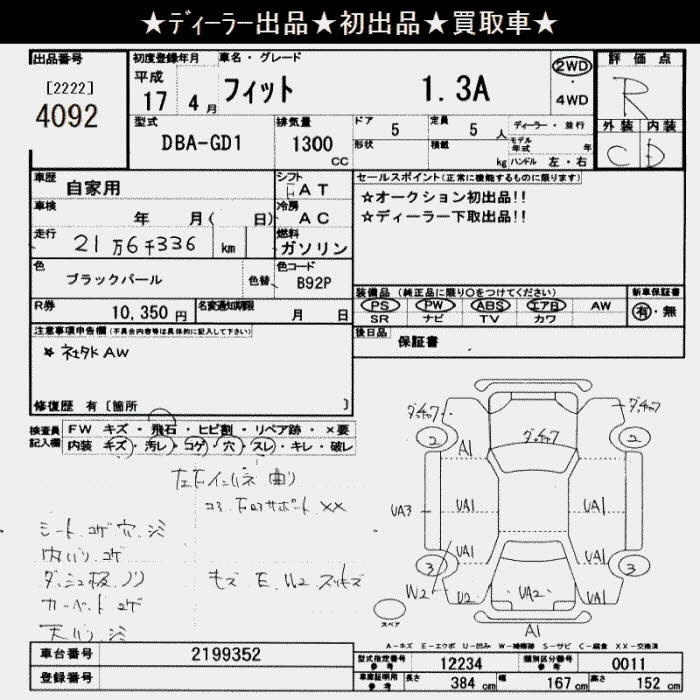 ★ディーラー出品★初出品★買取車★
出品番号 初度登録年月 車名・グレード 評価点
[2222] 平成 フィット 1.3A 2WD R
4092 17 4月 4WD
型式 排気量 ドア 5 定員 5人 ディーラー・並行 外装 内装
DBA-GD1 1300 CC 形状 積載 kg モデル年式 年 ハンドル 左・右 C D
車歴 自家用 シフト FAT セールスポイント(正常に機能するものに限ります)
車検 年 月( 日) 冷房 AC ☆オークション初出品!!
走行 21万6千336 km 燃料 ガソリン ☆ディーラー下取出品!!
色 ブラックパール 色替 色コード B92P
装備品(純正品に限り○をつけてください) 新車保証書
R券 10,350円 名変通知期限 月 日 PS PW ABS エアB AW 有・無
SR ナビ TV カワ
注意事項申告欄(不具合内容等は具体的に記入して下さい) 後日品 保証書
★ 社外AW
修復歴 有〔箇所 〕
検査員記入欄 FW キズ・飛石・ヒビ割・リペア跡・×要
内装 キズ・汚レ・コゲ・穴・スレ・キレ・破レ
コアサポート XX
シート コゲ 穴 シミ
内ハリ コゲ
ダッシュ板 ノリ
カーペット コゲ
天バリ シミ
2 2 A1
UA3 UA1 UA1 UA1
UA1 UA1
3 3
W2 U2 UA2 UA1
A1
スペア
A-キズ E-エクボ U-凹み W-補修跡 S-サビ C-腐食 XX-交換済
車台番号 2199352 型式指定番号 参考 12234 類別区分番号 参考 0011
登録番号 車庫証明用 参考 長さ 384cm 幅 167cm 高さ 152cm